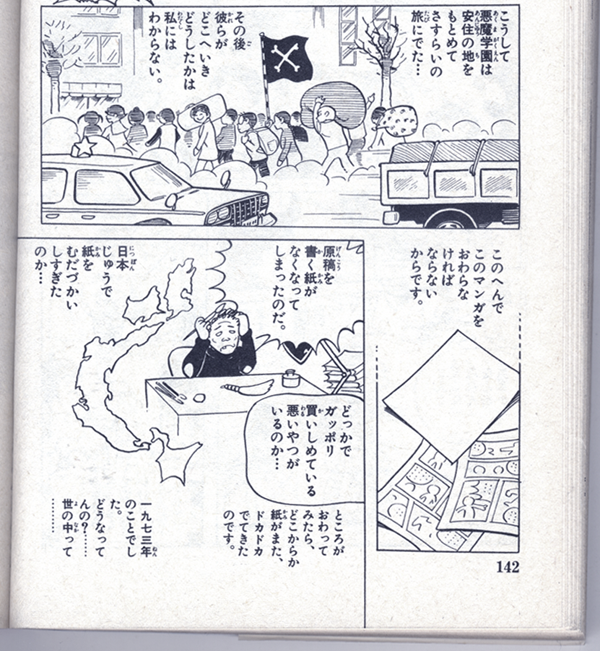 こうして
悪魔学園は
安住の地を
もとめて
さすらいの
旅にでた…
その後
彼らが
どこへいき
どうしたかは
私には
わからない。
このへんで
このマンガを
おわらな
ければ
ならない
からです。
原稿を
書く紙が
なくなって
しまったのだ。
日本
じゅうで
紙を
むだづかい
しすぎた
のか…
どっかで
ガッポリ
買いしめている
悪いやつが
いるのか…
ところが
おわって
みたら、
どこからか
紙がまた、
ドカドカ
でてきた
のです。
一九七三年
のことでし
た。
どうなって
んの?……
世の中って
………
142